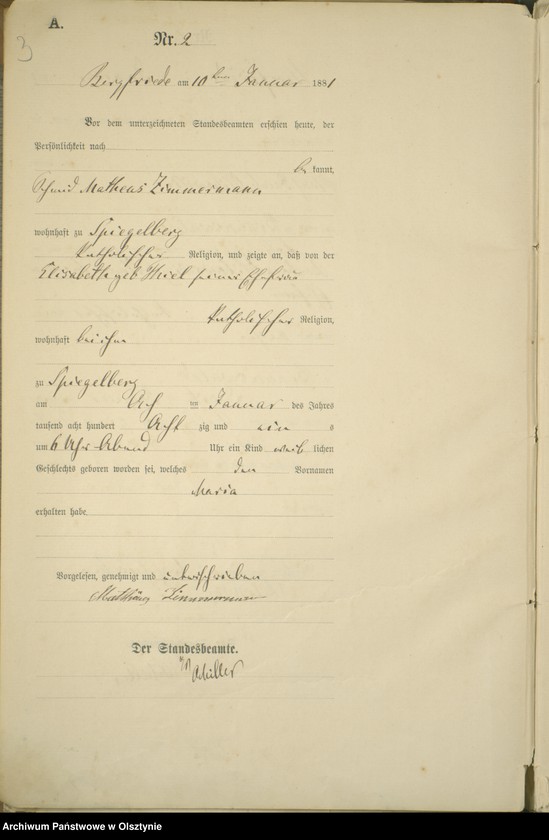 A.
3
Nr. 2
Bergfriede am 10ten Januar 1881
Vor dem unterzeichneten Standesbeamten erschien heute, der
Persönlichkeit nach
be kannt,
Schmid Matheus Zimmermann
wohnhaft zu Spiegelberg
katholischer Religion, und zeigte an, daß von der
Elisabeth geb Thiel seiner Ehefrau
katholischer Religion,
wohnhaft bei ihm
zu Spiegelberg
am ten Januar des Jahres
tausend acht hundert Acht zig und ein s
um 6 Uhr Abend Uhr ein Kind weib lichen
Geschlechts geboren worden sei, welches den Vornamen
Maria
erhalten habe.
Vorgelesen, genehmigt und unterschrieben
Zimmermann
Der Standesbeamte.
Schiller
Archiwum Państwowe w Olsztynie